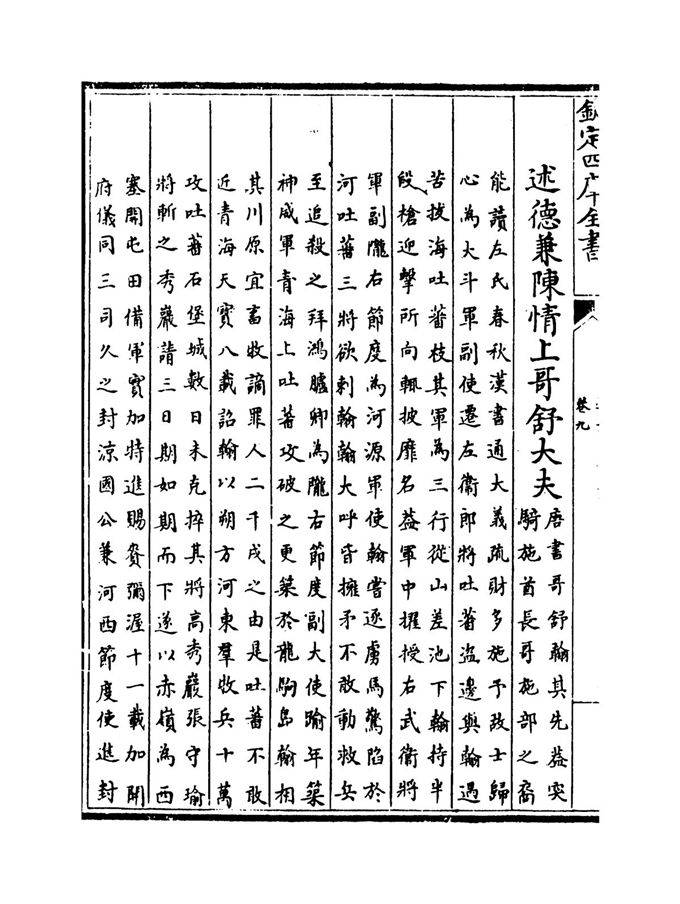 欽定四庫全書
卷九
述德兼陳情上哥舒大夫
唐書哥舒翰其先蓋突
騎施酋長哥施部之裔
能讀左氏春秋漢書通大義疏財多施予故士歸
心為大斗軍副使遷左衛郎將吐蕃盜邊與翰遇
苦拔海吐蕃枝其軍為三行從山差池下翰持半
段槍迎擊所向輒披靡名蓋軍中擢授右武衛將
軍副隴右節度為河源軍使翰嘗逐虜馬驚陷於
河吐蕃三將欲刺翰翰大呼皆擁矛不敢動救兵
至追殺之拜鴻臚卿為隴右節度副大使踰年築
神威軍青海上吐蕃攻破之更築於龍駒島翰相
其川原宜畜牧謫罪人二千戍之由是吐蕃不敢
近青海天寶八載詔翰以朔方河東羣牧兵十萬
攻吐蕃石堡城數日未克捽其將高秀巖張守瑜
將斬之秀巖請三日期如期而下遂以赤嶺為西
塞開屯田備軍實加特進賜賚彌渥十一載加開
府儀同三司久之封涼國公兼河西節度使進封